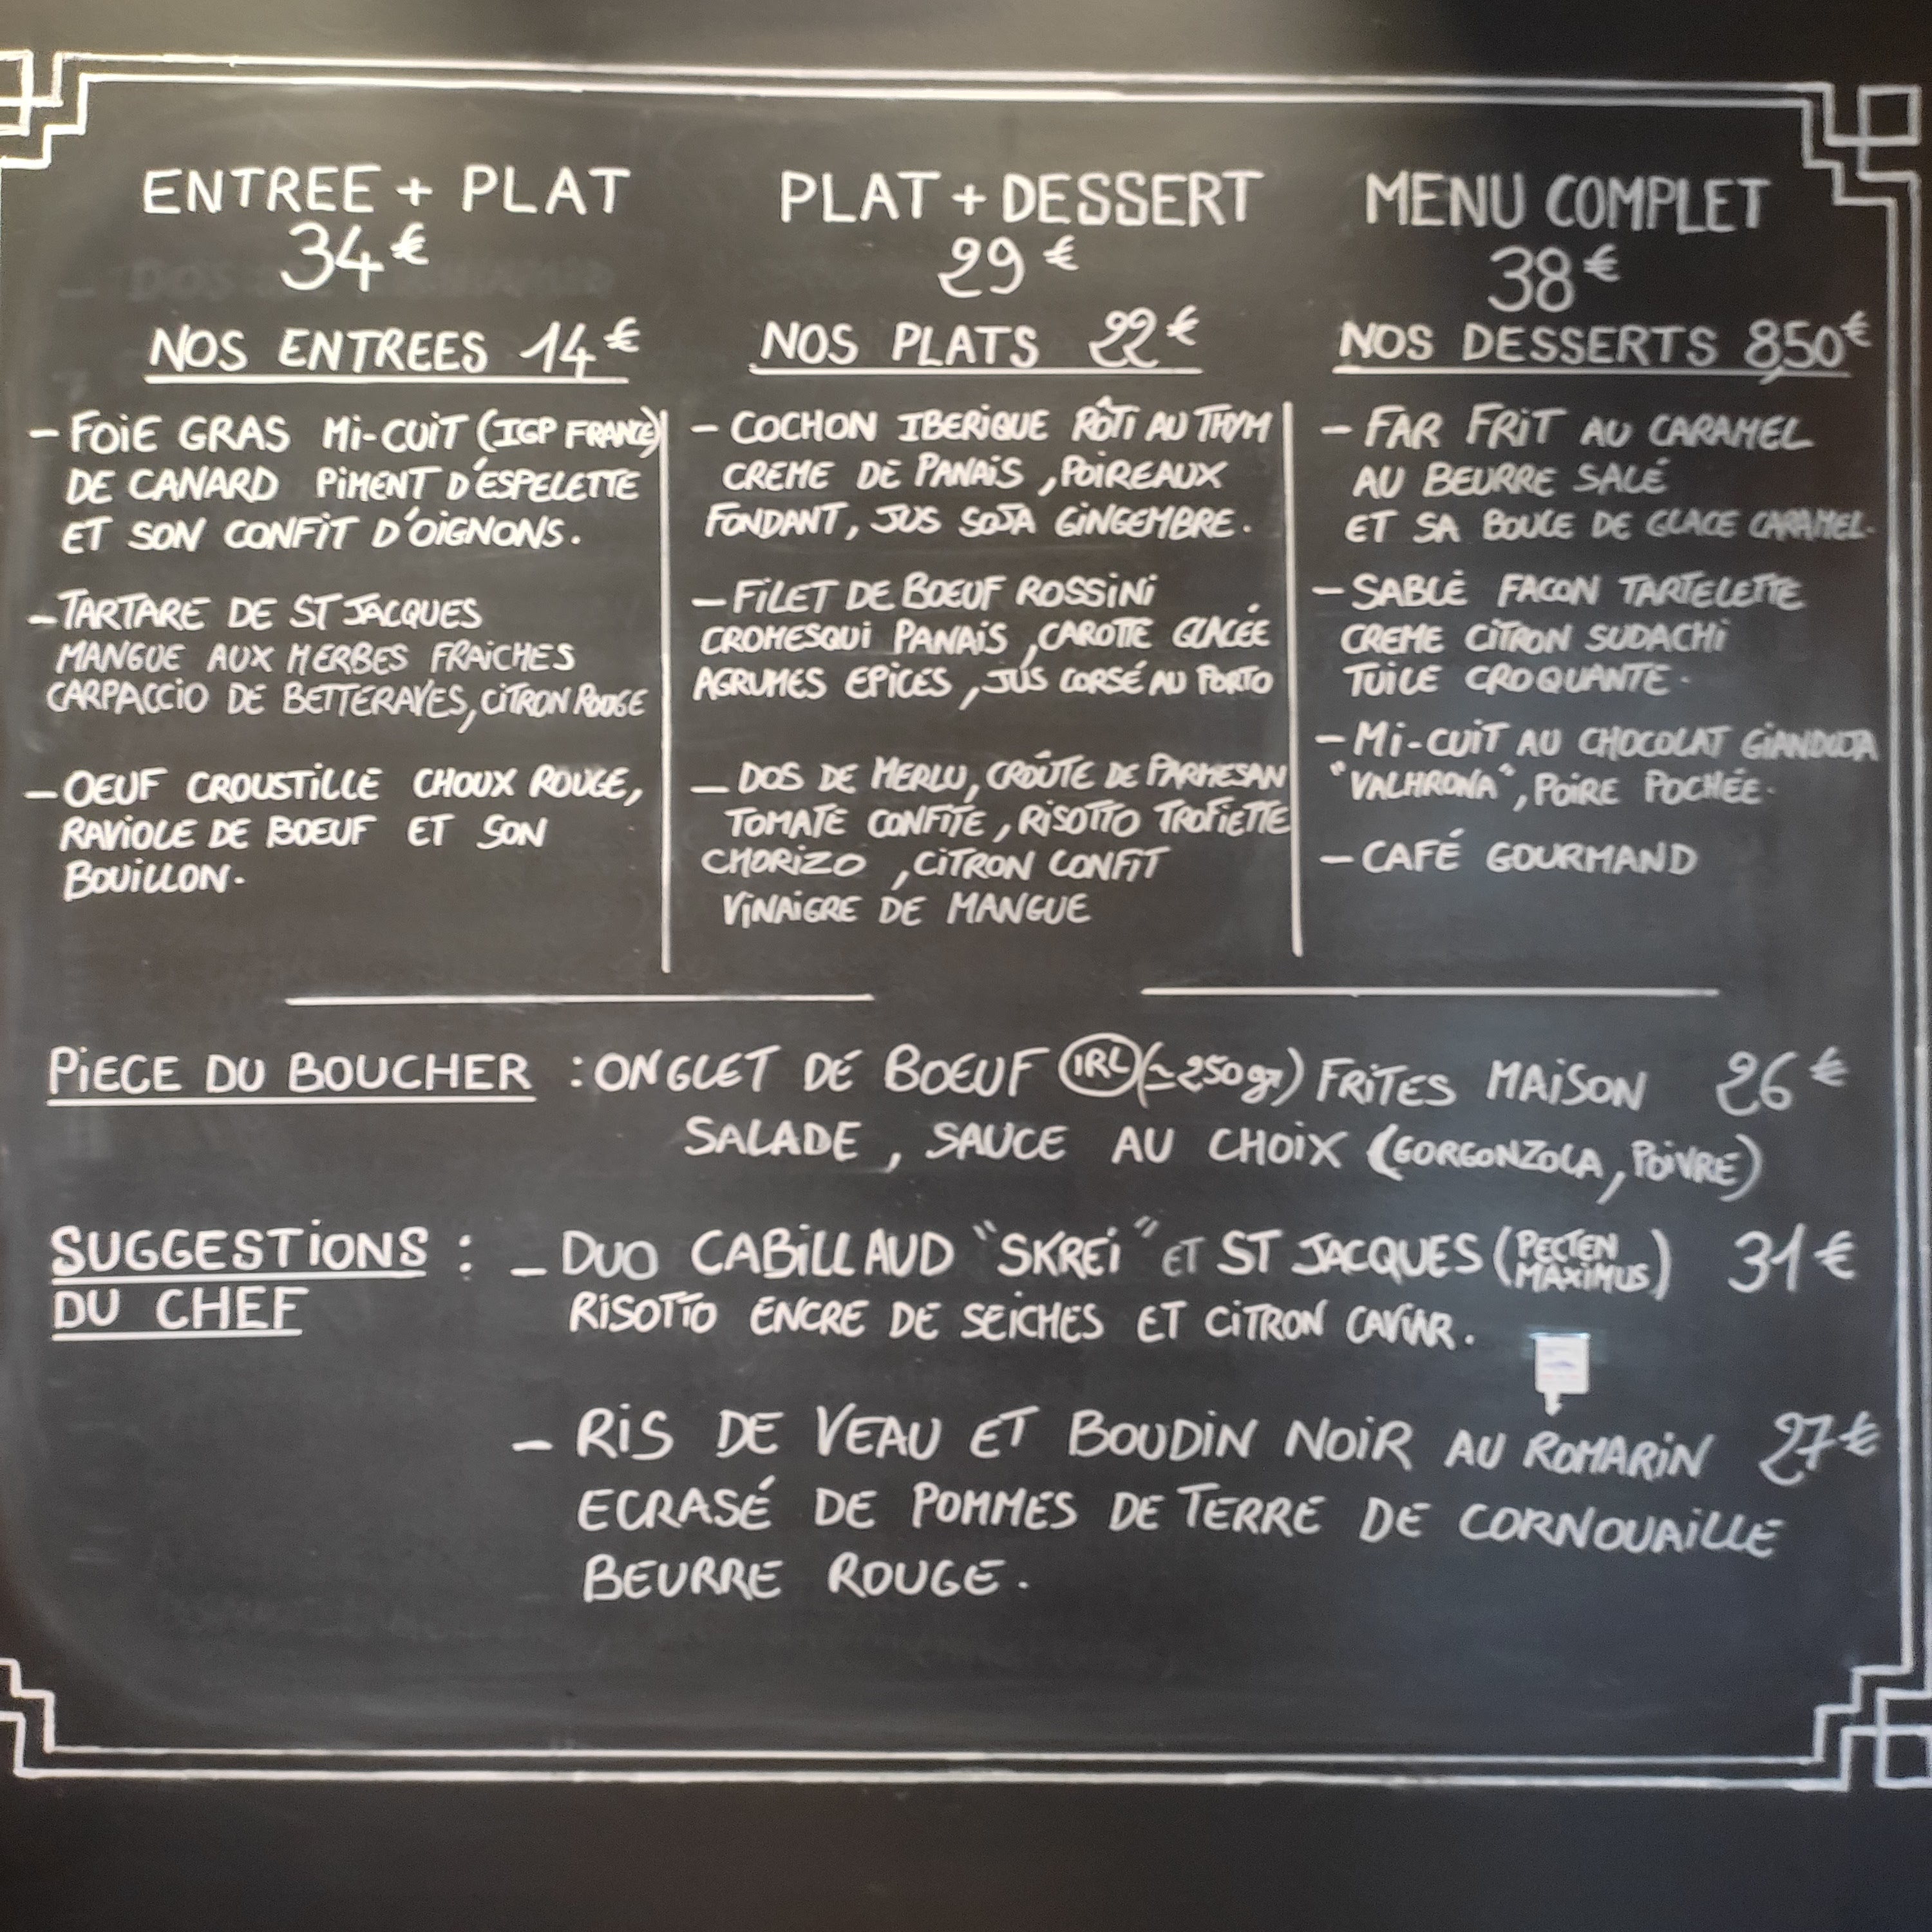 ENTREE + PLAT
34€
PLAT + DESSERT
29€
MENU COMPLET
38€
NOS ENTREES 14€
- FOIE GRAS MI-CUIT (IGP FRANCE)
DE CANARD PIMENT D'ESPELETTE
ET SON CONFIT D'OIGNONS.
- TARTARE DE ST JACQUES
MANGUE AUX HERBES FRAICHES
CARPACCIO DE BETTERAVES, CITRON ROUGE
- OEUF CROUSTILLE CHOUX ROUGE,
RAVIOLE DE BOEUF ET SON
BOUILLON.
NOS PLATS 22€
- COCHON IBERIQUE RÔTI AU THYM
CREME DE PANAIS, POIREAUX
FONDANT, JUS SOJA GINGEMBRE.
- FILET DE BOEUF ROSSINI
CROMESQUI PANAIS, CAROTTE GLACÉE
AGRUMES EPICES, JUS CORSÉ AU PORTO
- DOS DE MERLU, CROÛTE DE PARMESAN
TOMATE CONFITE, RISOTTO TROFIETTE
CHORIZO, CITRON CONFIT
VINAIGRE DE MANGUE
NOS DESSERTS 8,50€
- FAR FRIT AU CARAMEL
AU BEURRE SALÉ
ET SA BOULE DE GLACE CARAMEL.
- SABLÉ FACON TARTELETTE
CREME CITRON SUDACHI
TUILE CROQUANTE.
- MI-CUIT AU CHOCOLAT GIANDUJA
"VALHRONA", POIRE POCHÉE.
- CAFÉ GOURMAND
PIECE DU BOUCHER : ONGLET DE BOEUF (IRL) (≃250gr) FRITES MAISON 26€
SALADE, SAUCE AU CHOIX (GORGONZOLA, POIVRE)
SUGGESTIONS : - DUO CABILLAUD "SKREI" ET ST JACQUES (PECTEN MAXIMUS) 31€
DU CHEF RISOTTO ENCRE DE SEICHES ET CITRON CAVIAR.
- RIS DE VEAU ET BOUDIN NOIR AU ROMARIN 27€
ECRASÉ DE POMMES DE TERRE DE CORNOUAILLE
BEURRE ROUGE.